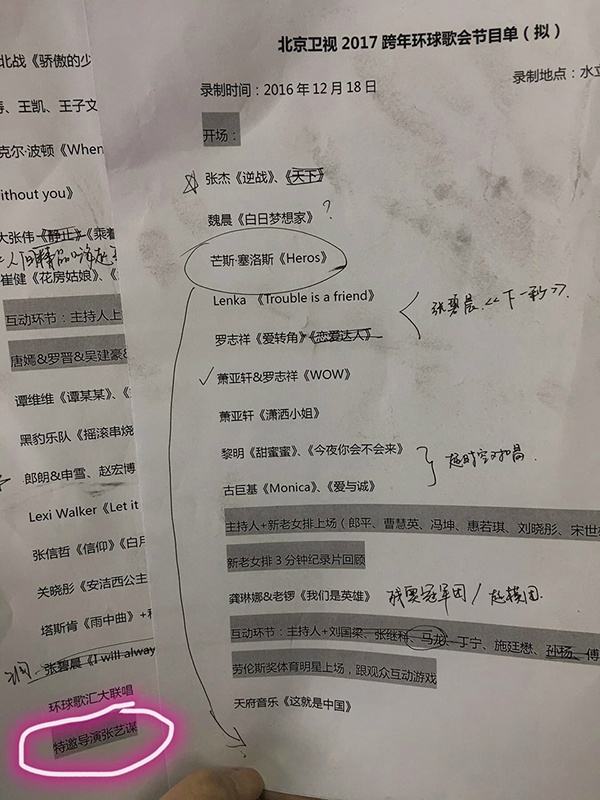 北京卫视 2017 跨年环球歌会节目单（拟）
录制时间：2016 年 12 月 18 日
录制地点：水立
开场：
张杰《逆战》、《天下》
魏晨《白日梦想家》?
芒斯·塞洛斯《Heros》
Lenka 《Trouble is a friend》
张碧晨《下一秒》
罗志祥《爱转角》《恋爱达人》
萧亚轩&罗志祥《WOW》
萧亚轩《潇洒小姐》
黎明《甜蜜蜜》、《今夜你会不会来》
超时空对唱
古巨基《Monica》、《爱与诚》
主持人+新老女排上场（郎平、曹慧英、冯坤、惠若琪、刘晓彤、宋世
新老女排 3 分钟纪录片回顾
龚琳娜&老锣《我们是英雄》
奥冠军团/超模团
互动环节：主持人+刘国梁、张继科、马龙、丁宁、施廷懋、孙杨、傅
劳伦斯奖体育明星上场，跟观众互动游戏
天府音乐《这就是中国》
?
北战《骄傲的少
、王凯、王子文
克尔·波顿《When
ithout you》
大张伟《静止》《乘着
崔健《花房姑娘》、《
互动环节：主持人上
唐嫣&罗晋&吴建豪&
谭维维《谭某某》、《
黑豹乐队《摇滚串烧
郎朗&申雪、赵宏博
Lexi Walker《Let it
张信哲《信仰》《白月
关晓彤《安洁西公主
塔斯肯《雨中曲》+
张碧晨《I will alway
环球歌汇大联唱
特邀导演张艺谋